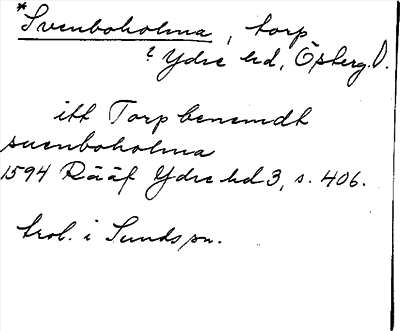 *Svenboholma, torp
i Ydre hd, Östergö.
itt Torp benemdt
suenboholma
1594 Rääf Ydre hd 3, s. 406.
trol. i Sunds sn.